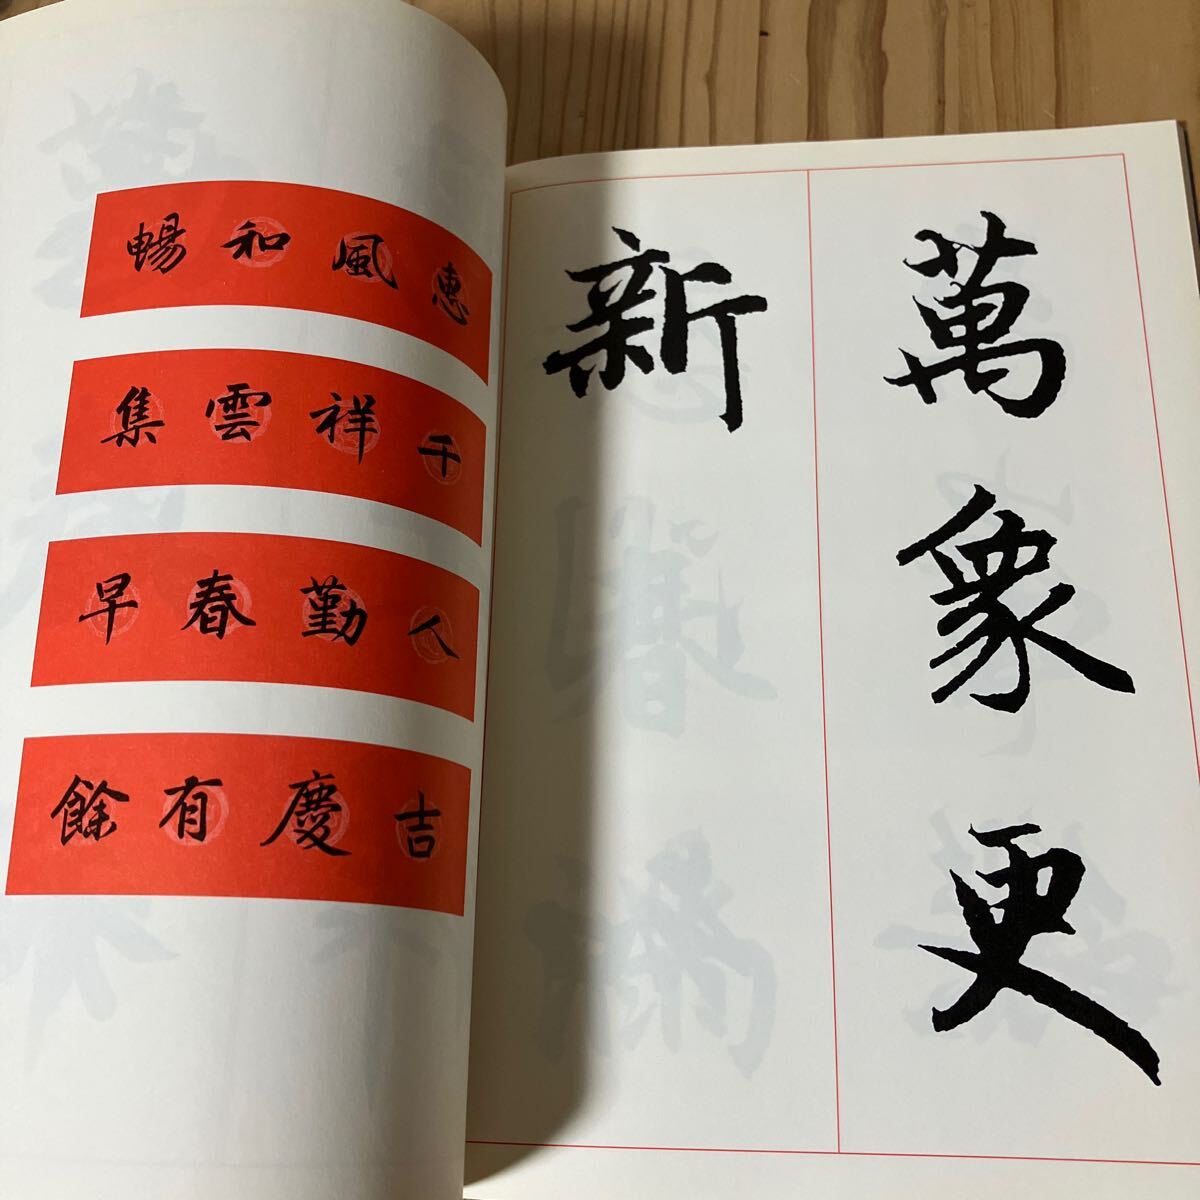 惠風和暢
千祥雲集
人勤春早
吉慶有餘
萬象更
新